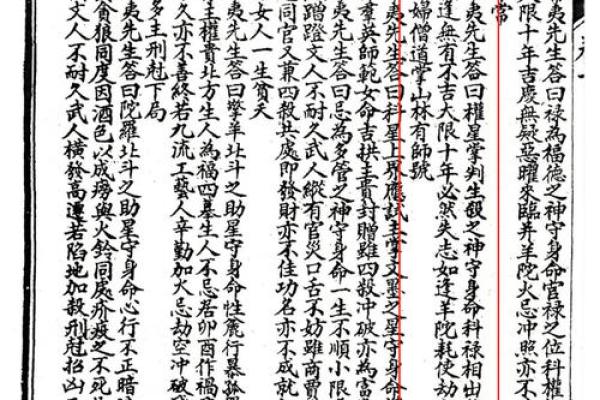 夷先生答曰祿為福德之神守身命官祿之位科權
限十年吉慶無疑惡曜來臨并羊陀火忌冲照亦不
常
夷先生答曰權星掌判生殺之神守身命科祿相出
逢無有不吉大限十年必然失志如逢羊陀耗使劫
婦僧道掌山林有師號
夷先生答曰科星上界應試主掌文墨之星守身命
羣英師範女命吉拱主貴封贈雖四殺冲破亦為富
夷先生答曰忌為多管之神守身命一生不順小限
蹭蹬文人不耐久武人縱有官災口舌不妨雖商賈
同官又兼四殺共處即發財亦不佳功名亦不成就
女人一生貧夭
夷先生答曰擎羊北斗之助星守身命性麄行暴孤
主權貴北方生人為福四墓生人不忌居卯酉作禍
久亦不善終若九流工藝人辛勤加火忌劫空冲破
多主刑尅下局
夷先生答曰陀羅北斗之助星守身命心行不正暗
貪狼同度因酒色以成癆與火鈴同處疥疫之不死
文人不耐久武人橫發高遷若陷地加殺刑尅招凶